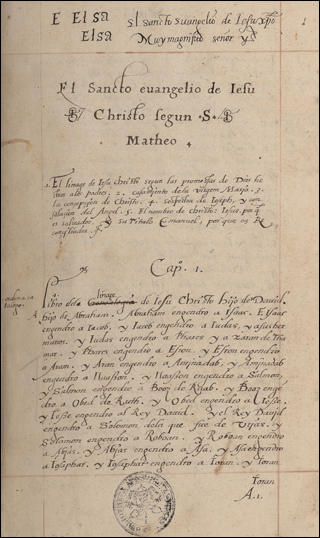 E El sa El sancto euangelio de Iesu xpo 1
Elsa Muy magnifico señor
El Sancto euangelio de Iesu
Christo segun S.
Matheo
1. El linage de Iesu Christo segun las promessas de Dios he
chas alos padres. 2. casamiento de la virgen Maria. 3.
la concepcion de Christo. 4. sospecha de Ioseph, y con
solacion del Angel. 5. El nombre de christo: Iesus, porq̃
es saluador, y su titulo Emanuel, por que os
Cap. 1.
linage
Libro dela de Iesu Christo hijo de Dauid.
hijo de Abraham. Abraham engendro a Isaac. E Isaac
engendro a Iacob. y Iacob engendro a Iudas, y asus her
manos. y Iudas engendro a Phares y a zaran de Tha
mar. y Phares engendro a Esron. y Esron engendro
a Aran. y Aran engendro a Aminadab. y Aminadab
engendro a Naasson. y Naasson engendro a Salmon.
y Salmon engendro a Booz de Raab. y Booz enge
dro a Obed de Ruth. y Obed engendro a Iesse.
y Iesse engendro al Rey Dauid. y el Rey Dauid
engendro a Solomon dela que fue de Urias. y
Solomon engendro a Roboan. y Roboan engendro
a Abias. y Abias engendro a Asa. y Asa engendro
a Iosaphat. y Iosaphat engendro a Ioran. y Ioran
Ioran
A.1.